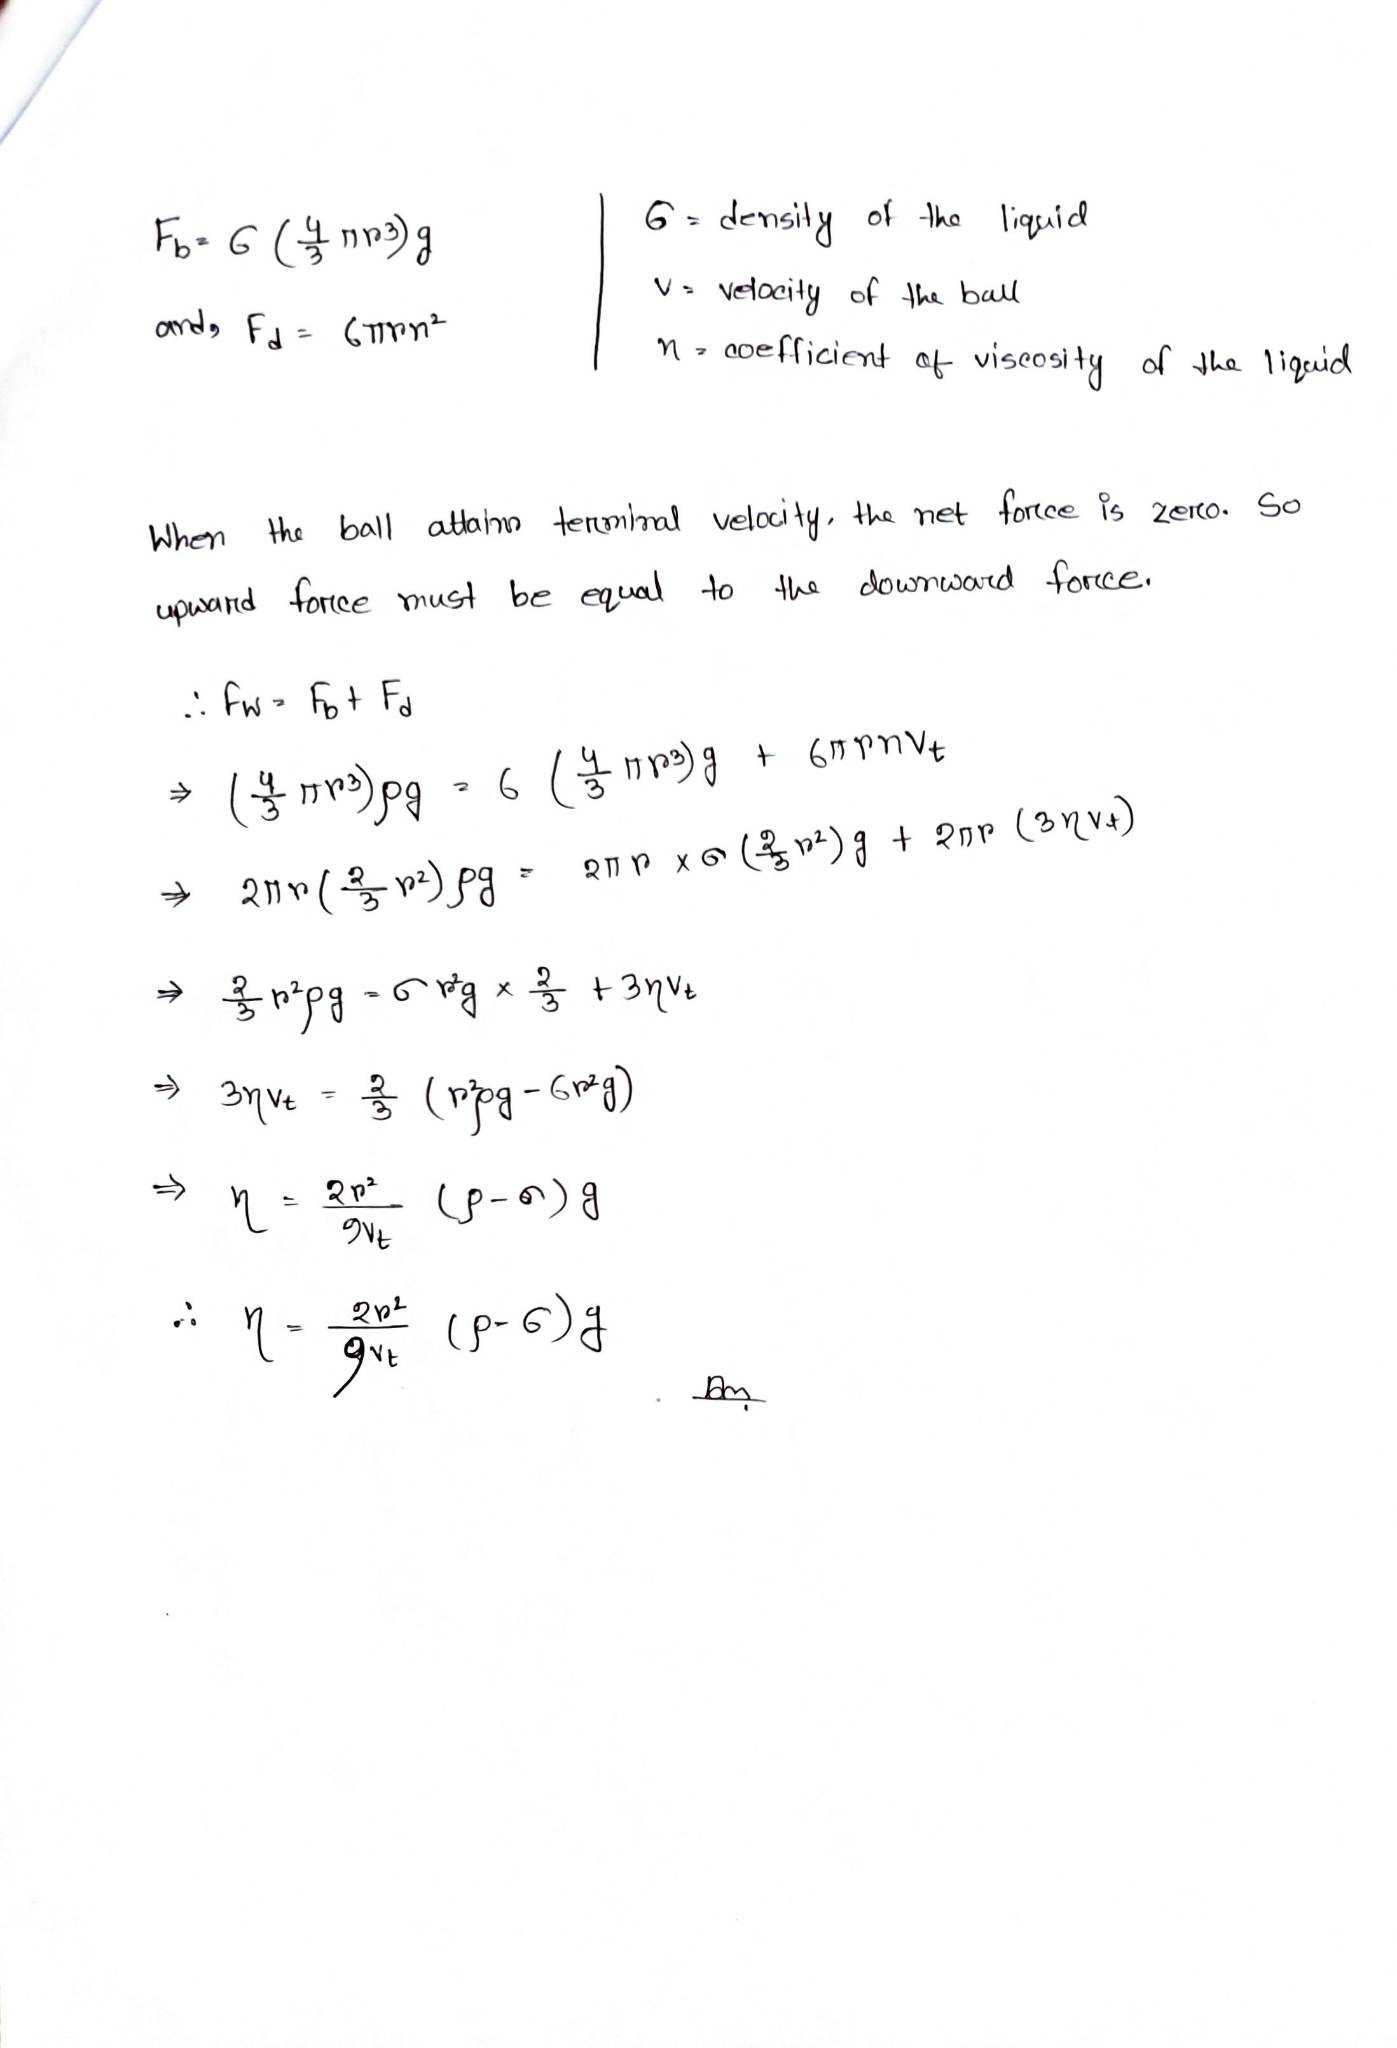 F_b = σ (4/3 πr³) g
and, F_d = 6πrη²
σ = density of the liquid
v = velocity of the ball
η = coefficient of viscosity of the liquid
When the ball attains terminal velocity, the net force is zero. So
upward force must be equal to the downward force.
∴ Fw = F_b + F_d
⇒ (4/3 πr³) ρg = σ (4/3 πr³) g + 6πrηv_t
⇒ 2πr (2/3 r²) ρg = 2πr × σ (2/3 r²) g + 2πr (3ηv_t)
⇒ 2/3 r²ρg = σ r²g × 2/3 + 3ηv_t
⇒ 3ηv_t = 2/3 (r²ρg - σr²g)
⇒ η = 2r²/9v_t (ρ-σ) g
∴ η = 2r²/9v_t (ρ-σ) g
Ans.